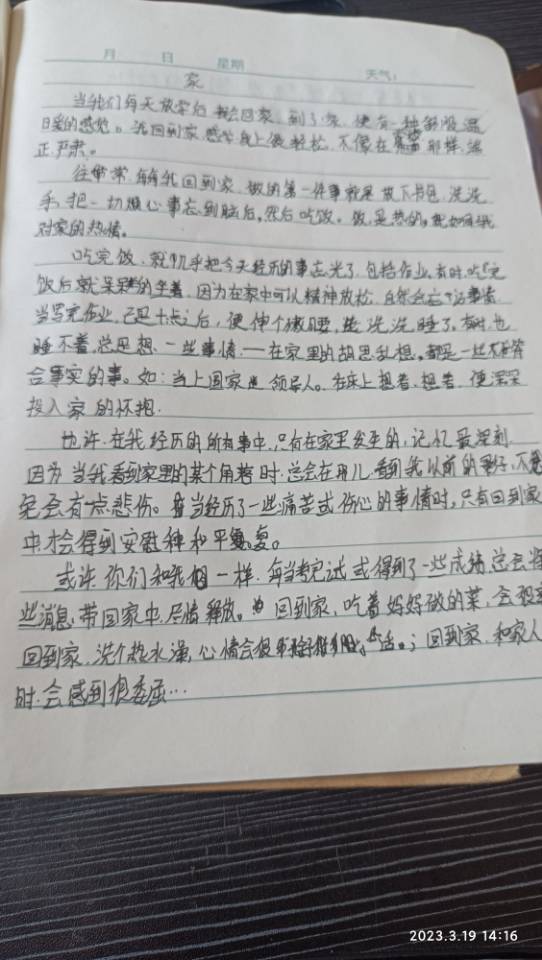 月 日 星期 天气:
家
当我们每天放学后 我会回家 到了家 便有一种舒服温
暖的感觉。我回到家 感觉身上很轻松 不像在 那样 端
正 严肃。
往常常 每每我回到家 做的第一件事就是 放下书包 洗洗
手 把一切烦心事忘到脑后,然后吃饭。饭是热的。就如同我
对家的热情。
吃完饭 就几乎把今天经历的事忘光了 包括作业 有时 吃完
饭后就呆呆的坐着 因为在家中可以精神放松 自然会忘 事情
当写完作业 已是十点之后,便伸个懒腰 洗洗睡了。有时 也
睡不着 总思想 一些事情 — 在家里的胡思乱想。都是一些不符
合事实的事。如:当上国家 领导人。在床上想着 想着 便深深
投入家的怀抱
也许 在我经历的所有事中 只有在家里发生的,记忆最深刻
因为 当我看到家里的某个角落时 总会在那儿 看到我以前的影子,不
免会有点悲伤。每当经历了一些痛苦或伤心的事情时,只有回到家
中才会得到安慰 和平复。
或许 你们和我 一样 每当考完试 或得到了一些成绩 总会将
些消息 带回家中 尽情释放。 回到家 吃着妈妈做的菜 会
回到家 洗个热水澡 心情会很 ;回到家 和家人
时 会感到很委屈…
2023.3.19 14:16